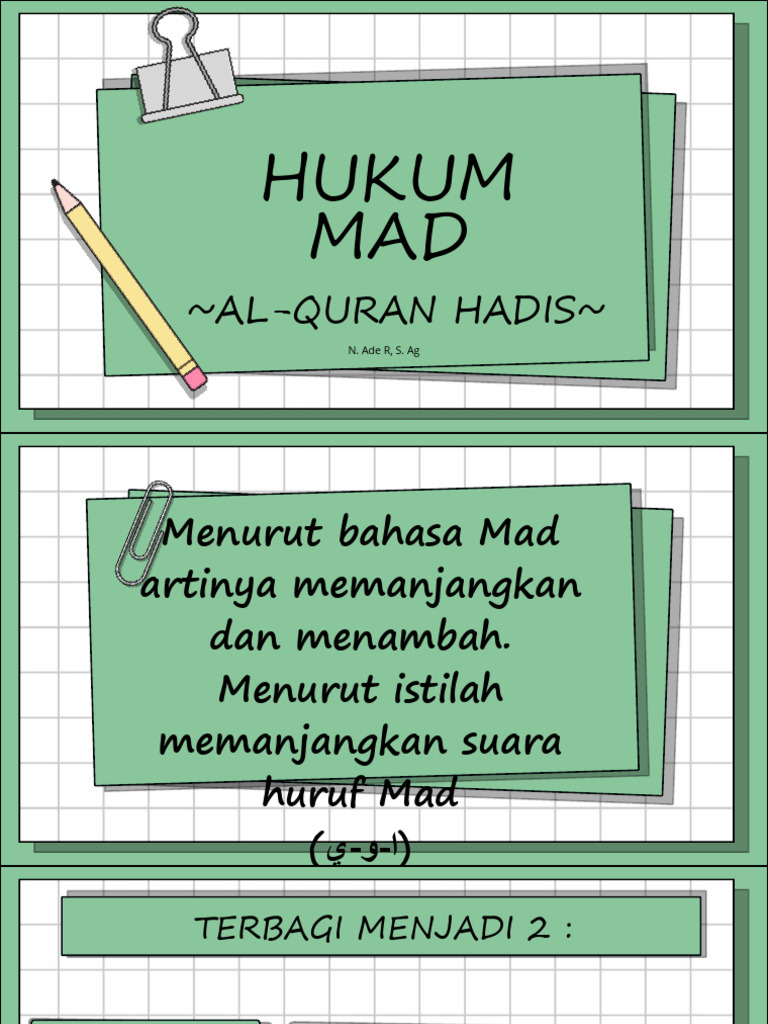 HUKUM
MAD
~AL-QURAN HADIS~
N. Ade R, S. Ag
Menurut bahasa Mad
artinya memanjangkan
dan menambah.
Menurut istilah
memanjangkan suara
huruf Mad
(ا-و-ي)
TERBAGI MENJADI 2 :